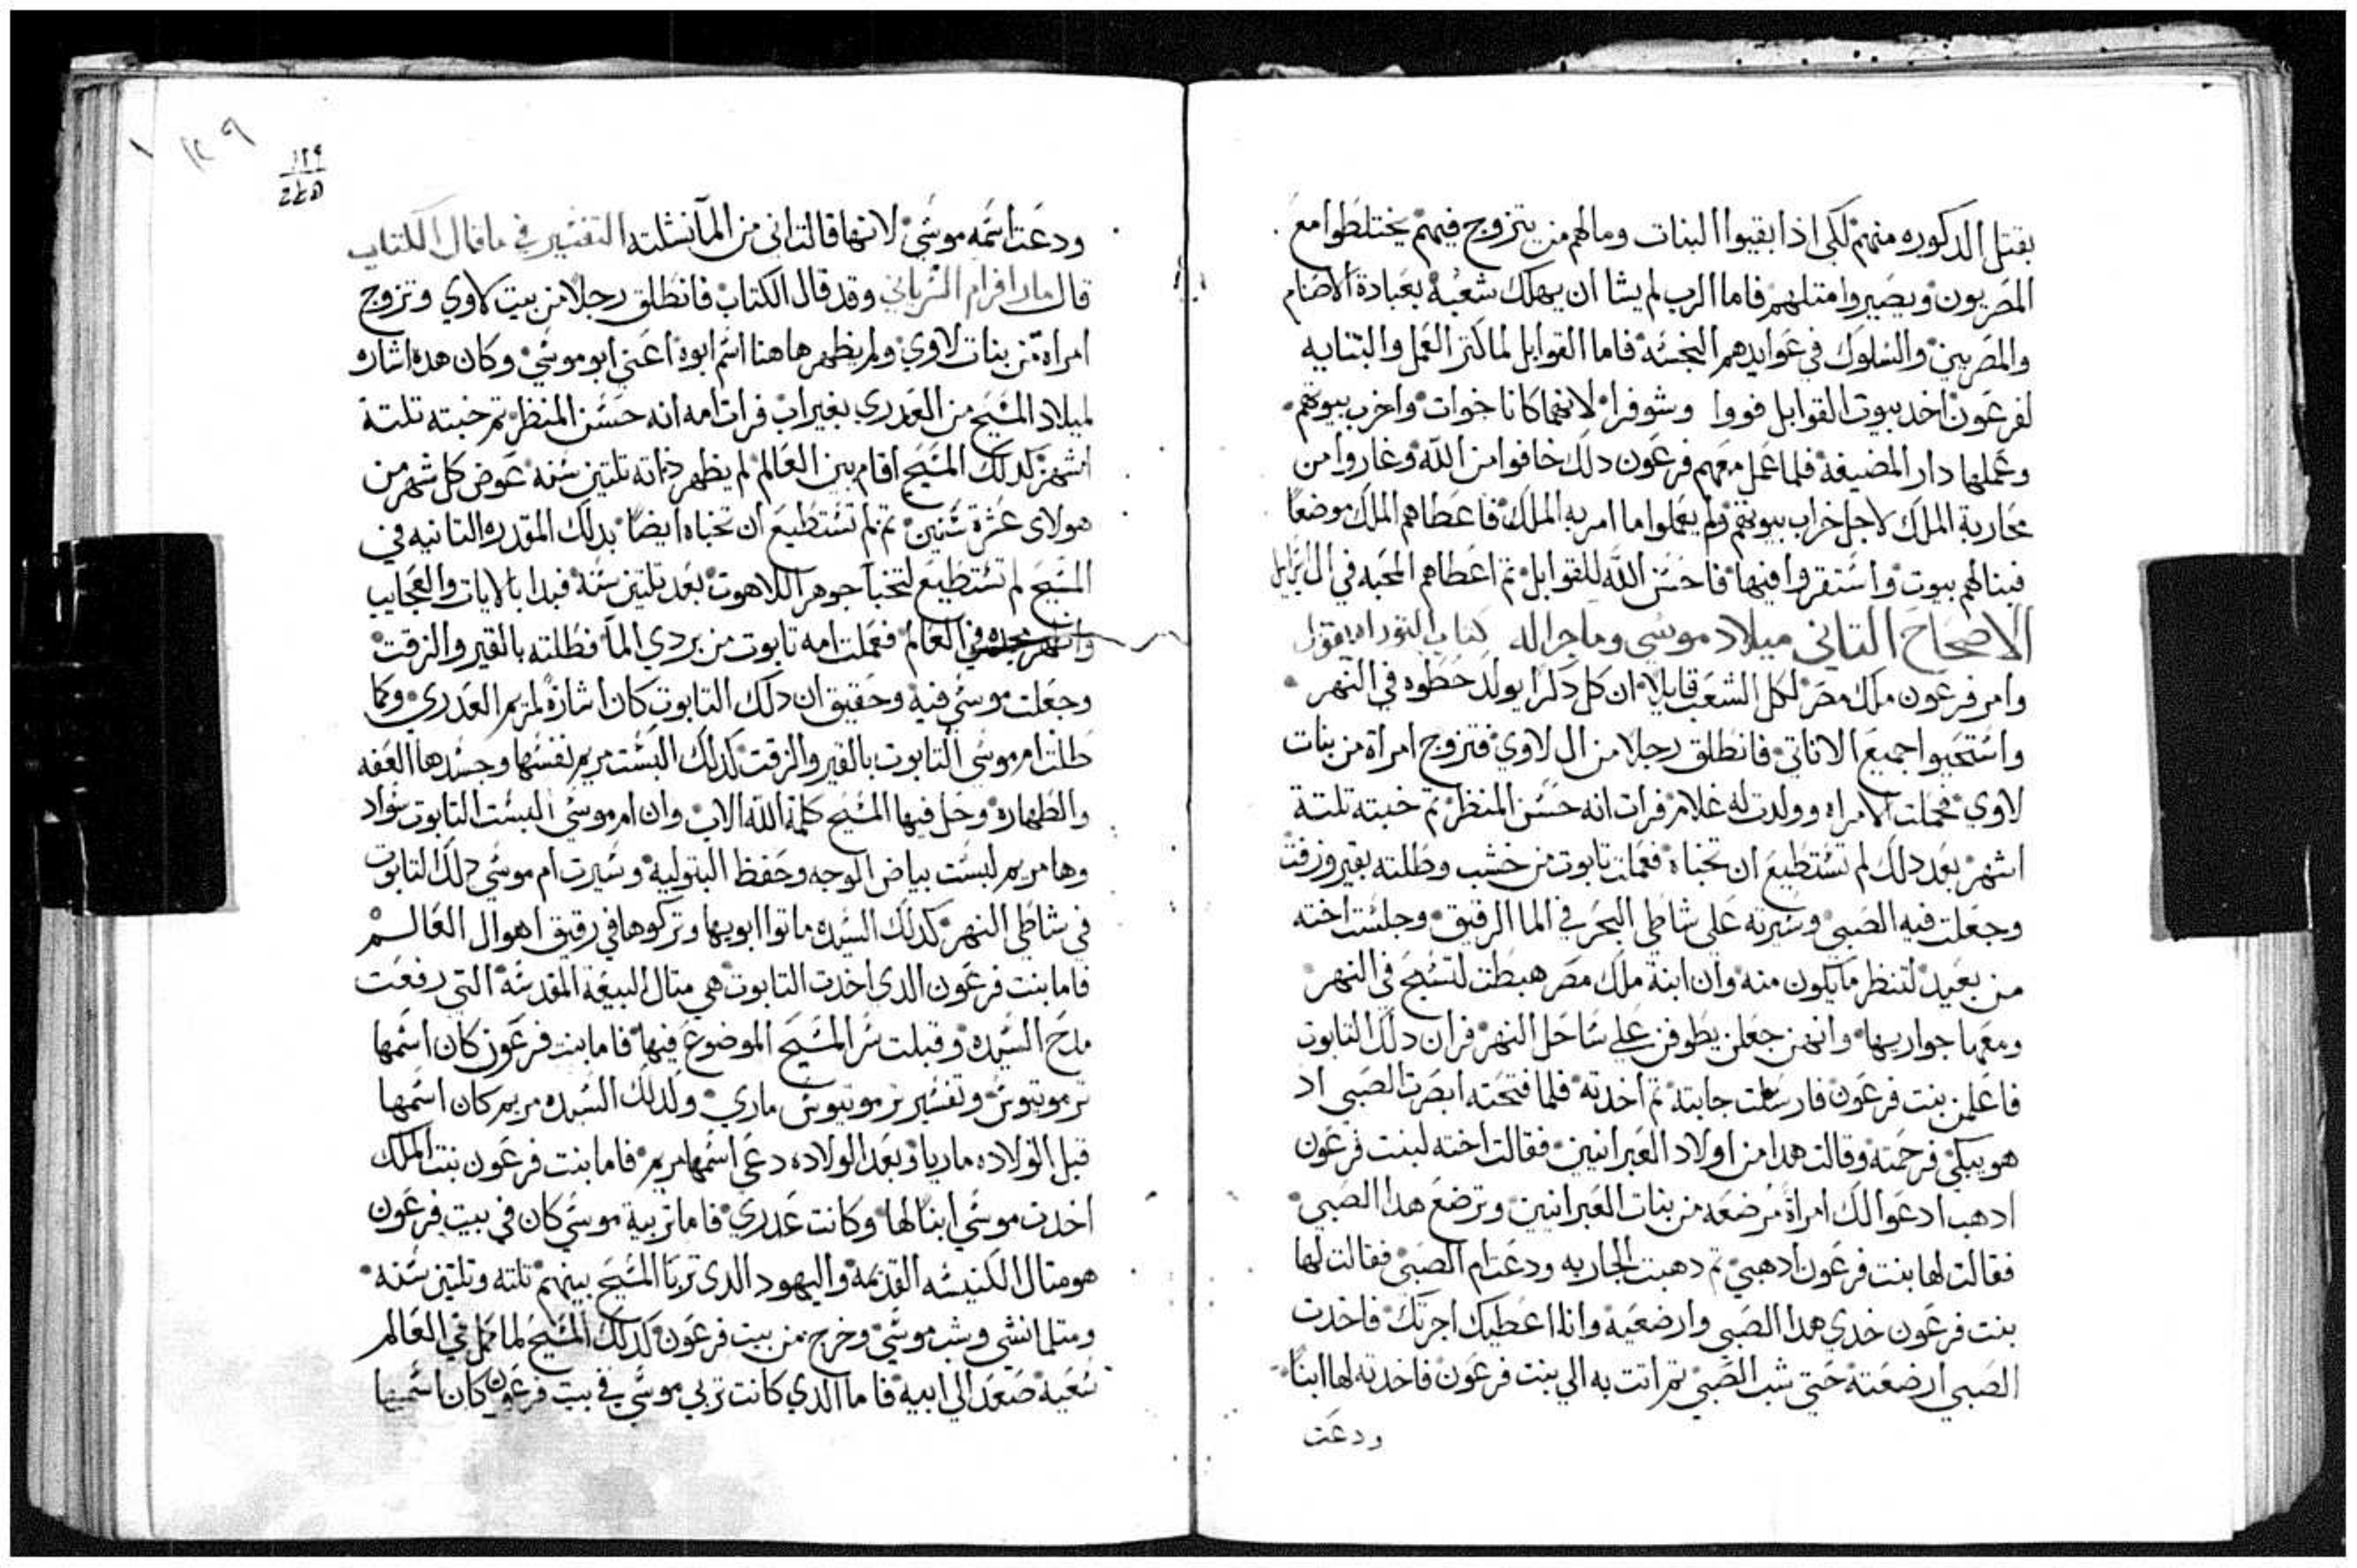 بقتل الدكوره منهم لكى اذا بقيوا البنات ومالهم من يتزوج فيهم يختلطوا مع
المصريون ويصيروا متلهم فاما الرب لم يشا ان يهلك شعبه بعبادة الاصنام
والمصريين والسلوك في عوايدهم النجسه فاما القوابل لما كتر العمل والتنايه
لفرعون اخد بيوت القوابل فووا وشوفرا لانهما كانا خوات واخرب بيوتهم
وعملها دار المضيفه فلما عمل معهم فرعون دلك خافوا من الله وغاروا من
محاربة الملك لاجل خراب بيوتهم ولم يعملوا ما امر به الملك فاعطاهم الملك موضعًا
فبنالهم بيوت واستقروا فيها فاحسن الله للقوابل تم اعطاهم المحبه في ال اسرايل
الاصحاح التاني ميلاد موسى وما جرا له كتاب التوراه يقول
وامر فرعون ملك مصر لكل الشعب قايلا ان كل دكرا يولد حطوه في النهر
واستحيوا جميع الاناتي فانطلق رجلا من ال لاوي فتزوج امراة من بنات
لاوي فحملت الامراه وولدت له غلام فرات انه حسن المنظر تم خبته تلتة
اشهر بعد دلك لم تستطيع ان تخباه فعملت تابوت من خشب وطلته بقير وزفت
وجعلت فيه الصبي وسيرته على شاطى البحر في الما الرقيق وجلست اخته
من بعيد لتنظر ما يكون منه وان ابنة ملك مصر هبطت لتسبح في النهر
ومعها جواريها وانهن جعلن يطوفن على ساحل النهر فران دلك التابوت
فاعلمن بنت فرعون فارسلت جابته تم اخدته فلما فتحته ابصرت الصبي اد
هو يبكي فرحمته وقالت هدا من اولاد العبرانيين فقالت اخته لبنت فرعون
ادهب ادعوا لك امراة مرضعه من بنات العبرانيين وترضع هدا الصبي
فقالت لها بنت فرعون ادهبي تم دهبت الجاريه ودعت ام الصبي فقالت لها
بنت فرعون خدي هدا الصبي وارضعيه وانا اعطيك اجرتك فاخدت
الصبي ارضعته حتى شب الصبي تم اتت به الي بنت فرعون فاخدته لها ابنًا
ودعت
١٢٩
١٢٩
ودعت اسمه موسي لانها قالت اني من المآ نشلته التفسير في ما قال الكتاب
قال مار افرام السرياني وقد قال الكتاب فانطلق رجلا من بيت لاوي وتزوج
امراة من بنات لاوي ولم يظهر هاهنا اسم ابوه اعني ابو موسي وكان هده اشاره
لميلاد المسيح من العدري بغير اب فرات امه انه حسن المنظر تم خبته تلتة
اشهر كدلك المسيح اقام بين العالم لم يظهر داته تلتين سنه عوض كل شهر من
هولاى عشرة سنين تم لم تستطيع ان تخباه ايضًا بدلك المقدره التانيه في
المسيح لم تستطيع لتخبا جوهر اللاهوت بعد تلتين سنه فبدا بالايات والعجايب
واشهر مجده في العالم فعملت امه تابوت من بردي المآ فطلته بالقير والزفت
وجعلت موسي فيه وحقيق ان دلك التابوت كان اشارةً لمريم العدري وكما
طلت ام موسي التابوت بالقير والزفت كدلك البست مريم نفسها وجسدها العفه
والطهاره وحل فيها المسيح كلمة الله الاب وان ام موسي البست التابوت سواد
وها مريم لبست بياض الوجه وحفظ البتوليه وسيرت ام موسي دلك التابوت
في شاطي النهر كدلك السيده ماتوا ابويها وتركوها في رقيق اهوال العالم
فاما بنت فرعون الدى اخدت التابوت هي متال البيعة المقدسة التي رفعت
مدح السيده وقبلت سر المسيح الموضوع فيها فاما بنت فرعون كان اسمها
ترموتيوس وتفسير ترموتيوس ماري ولدلك السيده مريم كان اسمها
قبل الولاده ماريا وبعد الولاده دعي اسمها مريم فاما بنت فرعون بنت الملك
اخدت موسي ابنًا لها وكانت عدري فاما تربية موسي كان في بيت فرعون
هو متال الكنيسه القديمة واليهود الدى تربا المسيح بينهم تلته وتلتين سنه
ومتلما نشي وشب موسي وخرج من بيت فرعون كدلك المسيح لما كمل في العالم
سعيه صعد الي ابيه فاما الدي كانت تربي موسي في بيت فرعون كان اسمها